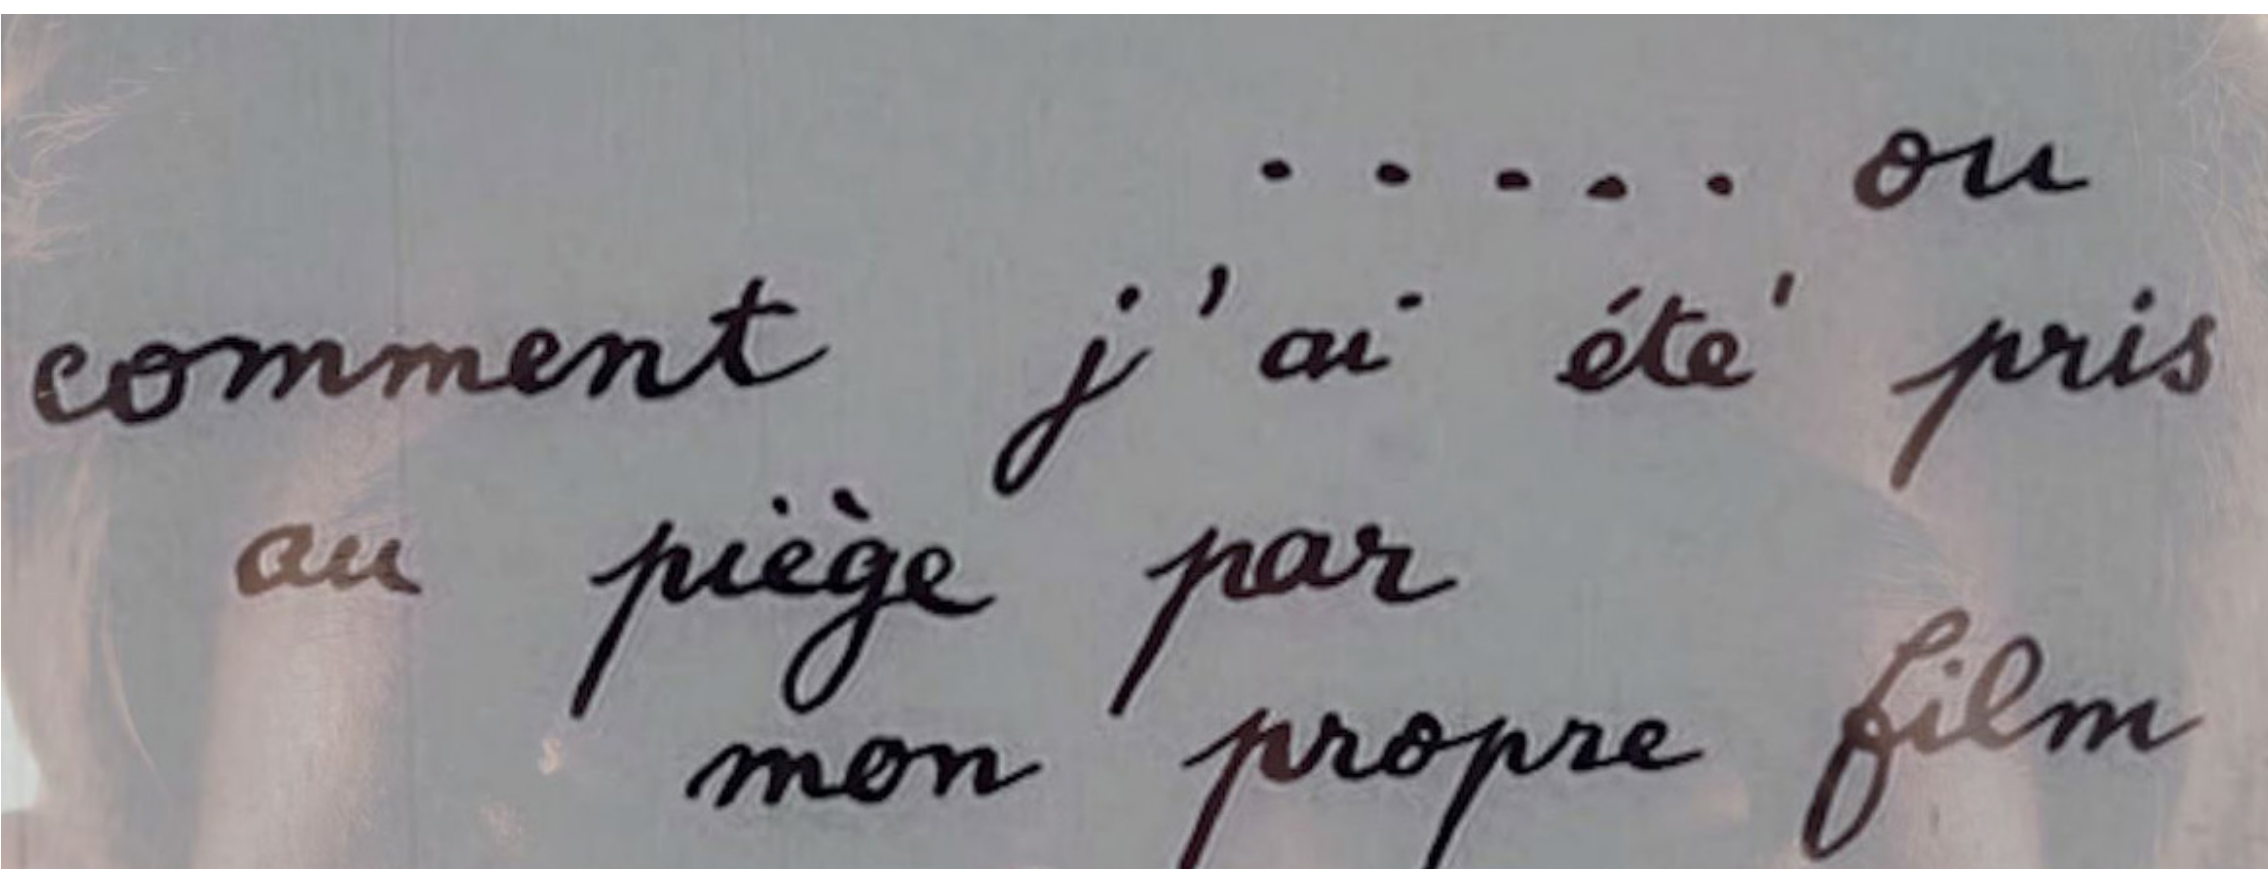 ..... ou
comment j'ai été pris
au piège par
mon propre film